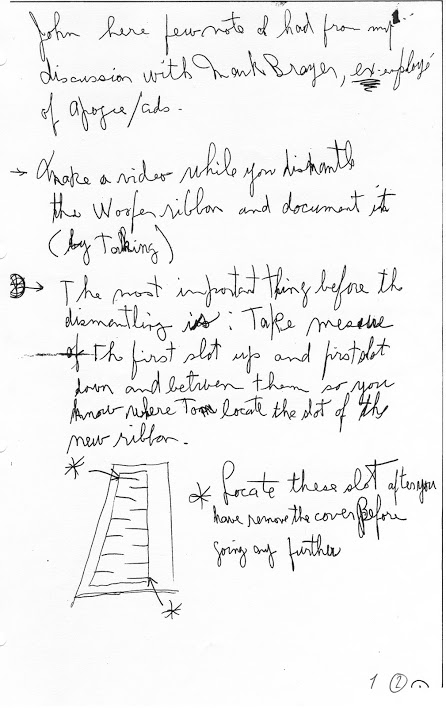 John here few note I had from my
discussion with Mark Brayer, ex-employé
of Apogee/ads.
→ Make a video while you dismantle
the Woofer ribbon and document it
(by Talking)
→ The most important thing before the
dismantling is: Take mesure
of The first slot up and first slot
down and between them so you
know where To locate the slot of the
new ribbon.
* Locate these slot after you
have remove the cover Before
going any further
*
*
1 2